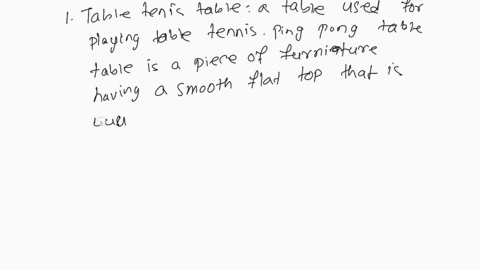 1. Table tenis table: a table used for
playing table tennis. ping pong table
table is a piece of furniature
having a smooth flat top that is